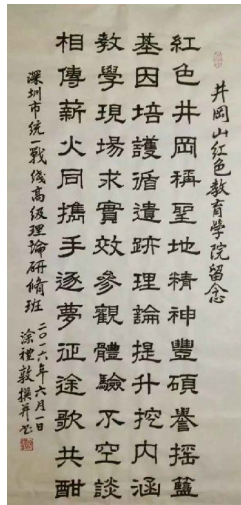 井岡山紅色教育學院留念
紅色井岡稱聖地精神豐碩譽搖籃
基因培護循遺跡理論提升挖内涵
教學現場求實效參觀體驗不空談
相傳薪火同攜手逐夢征途歌共酣
深圳市統一戰綫高級理論研脩班
二〇一六年六月一日
涂禮敦撰并書